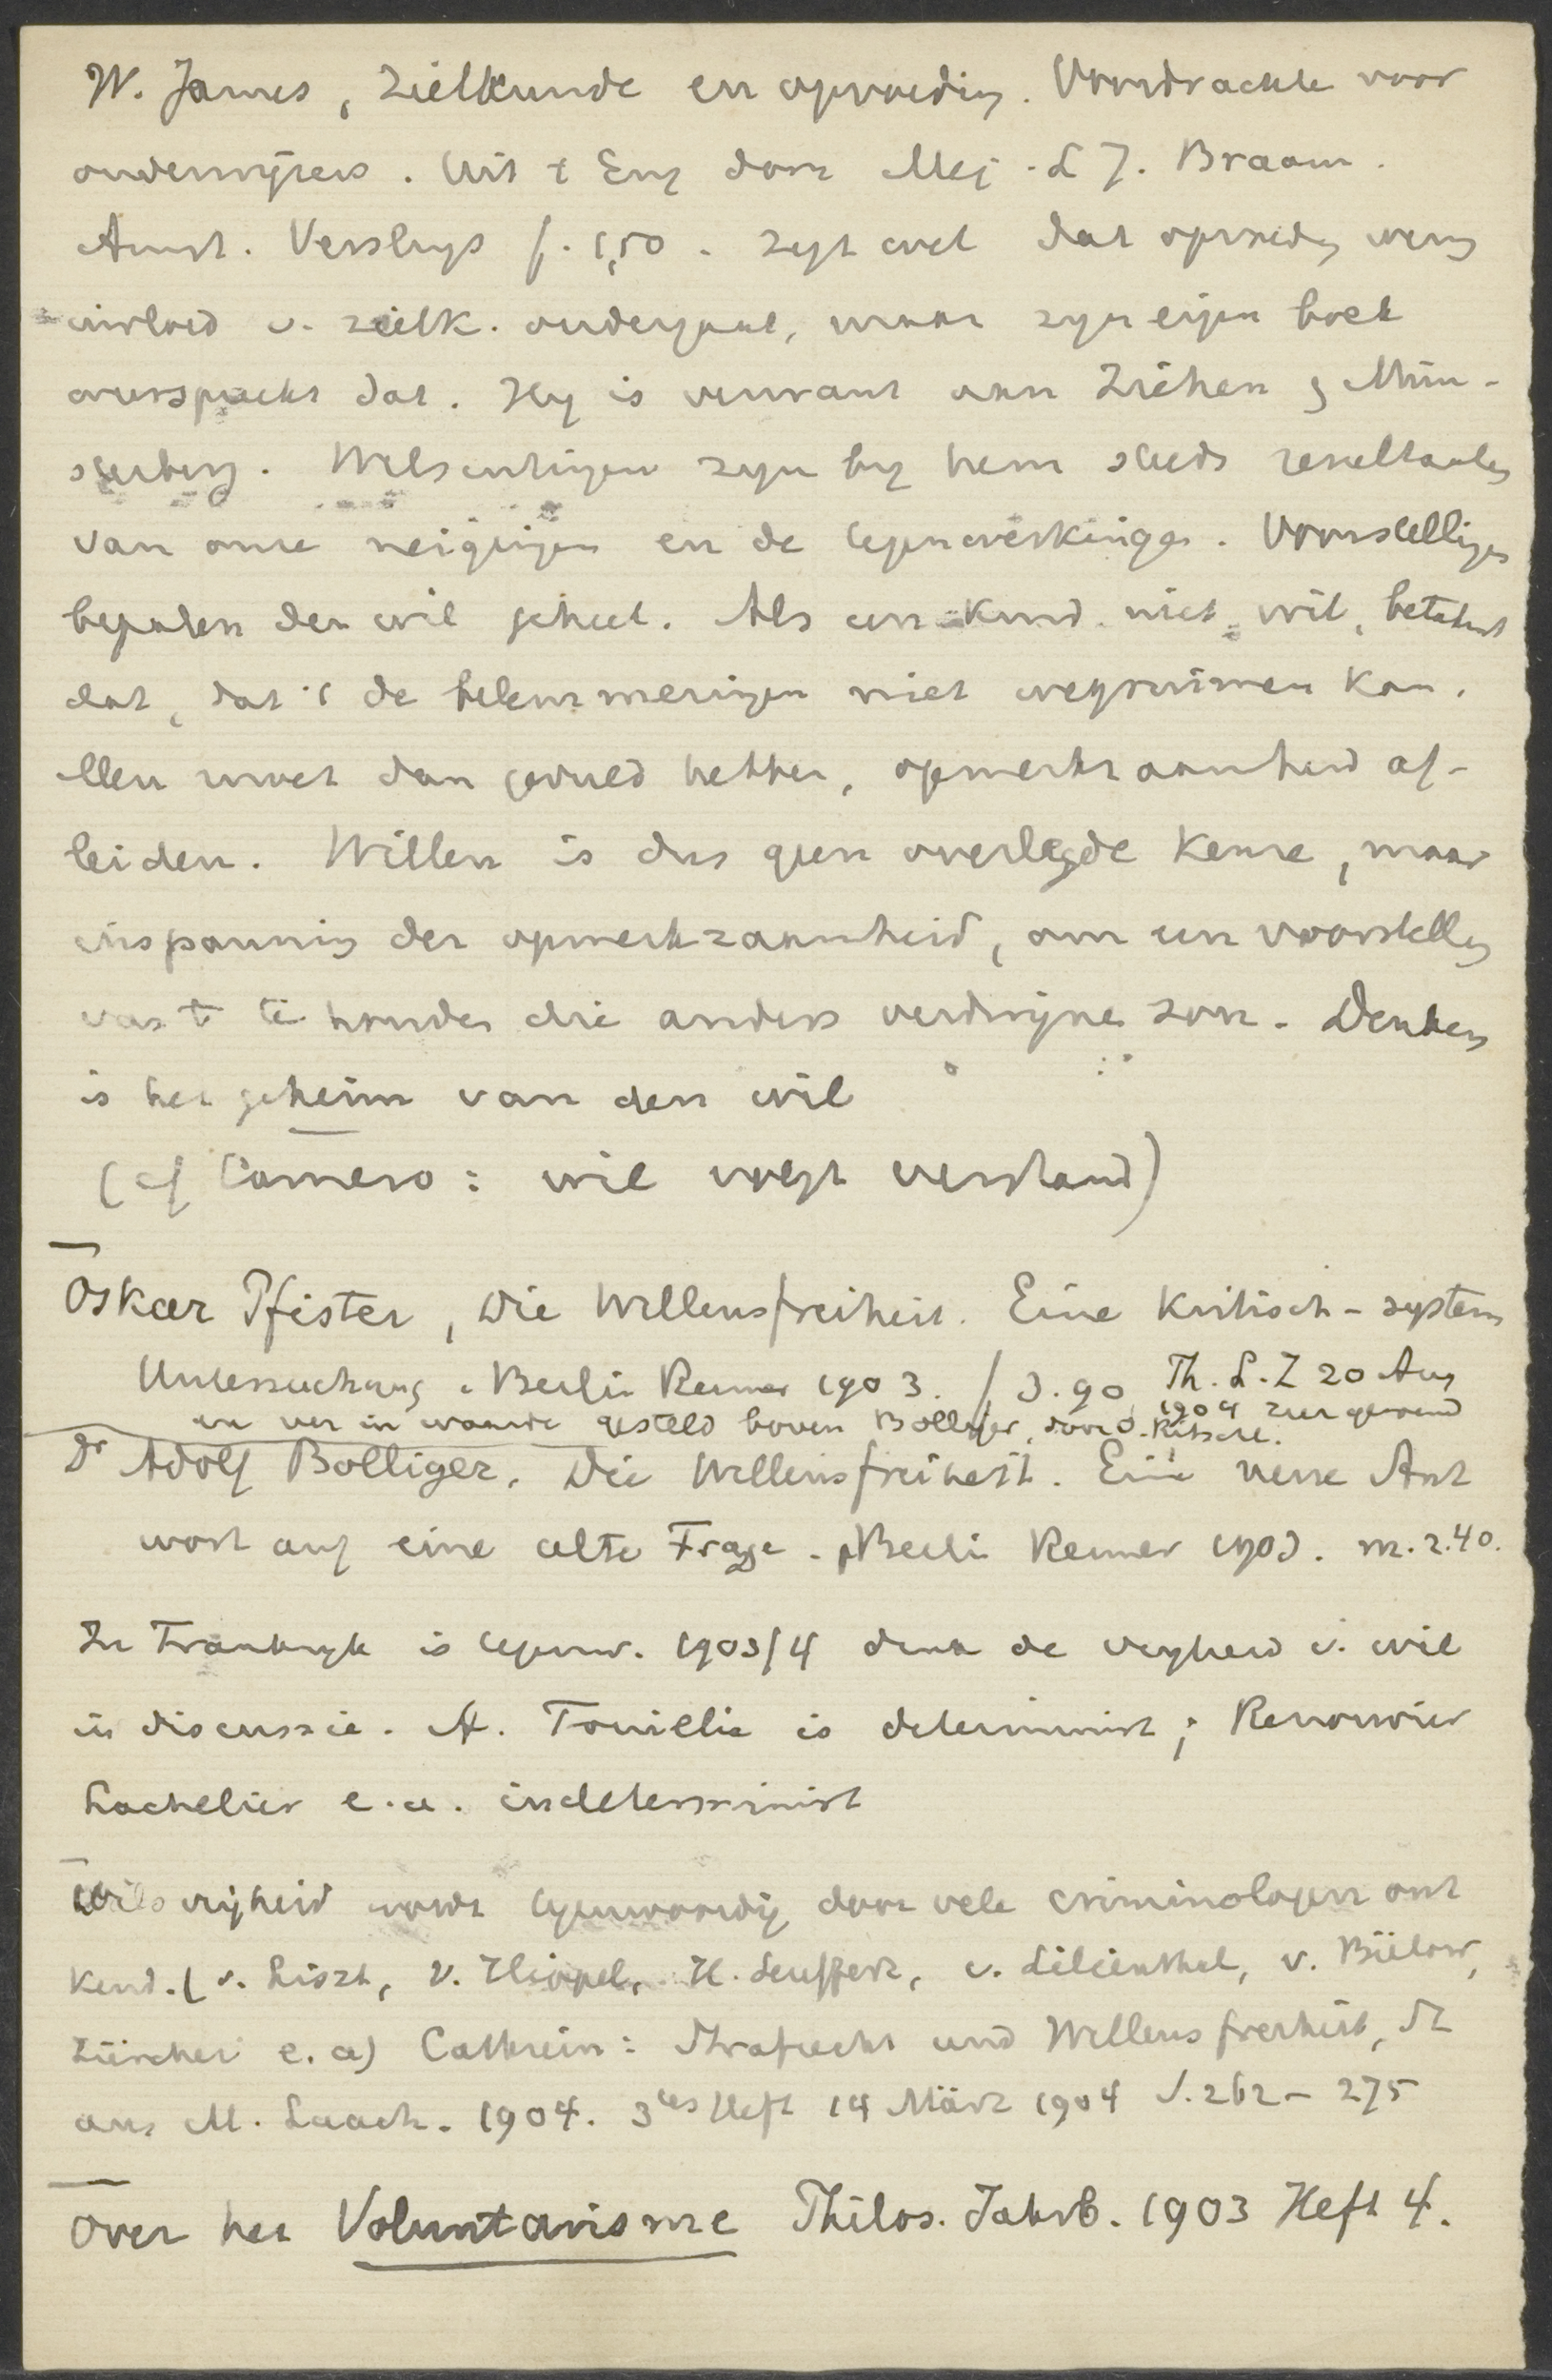 W. James, Zielkunde en opvoeding. Voordrachten voor
onderwijzers. Uit 't Eng door Mej. L J. Braam.
Amst. Versluys f. 1,50. Zegt wel dat opvoedg weing
invloed v. zielk. ondergaat, maar zyn eigen boek
weerspreekt dat. Hy is verwant aan Ziehen & Mün-
sterberg. Wilsuitingen zyn by hem steeds resultaaten
van onze neigingen en de tegenwerkingen. Voorstellingen
bepalen den wil geheel. Als een kind niet wil, betekent
dat, dat 't de belemmeringen niet wegruimen kan.
Men moet dan geduld hebben, opmerkzaamheid af-
leiden. Willen is dus geen overlegde keuze, maar
inspanning der opmerkzaamheid, om een voorstelling
vast te houden die anders verdwijnen zou. Denken
is het geheim van den wil
(cf Camero: wil volgt verstand)
Oskar Pfister, Die Willensfreiheit. Eine kritisch-system
Untersuchung. Berlin Reimer 1903. / 3.90 Th. L. Z 20 Aug
1904 zeer geroemd
en ver in waarde gesteld boven Bolliger, door O. Ritschl.
Dr Adolf Bolliger. Die Willensfreiheit. Eine neue Ant
wort auf eine alte Frage. Berlin Reimer 1903. M. 2.40.
In Frankryk is tegenw. 1903/4 druk de vryheid v. wil
in discussie. A. Fouillée is determinist; Renouvier
Lachelier e.a. indeterminist
Wilsvrijheid wordt tegenwoordig door vele criminologen ont
kend. (v. Liszt, v. Hippel, H. Seuffert, v. Lilienthal, v. Bülow,
Zürcher e.a) Cathrein: Strafrecht und Willensfreiheit, St
aus M. Laach. 1904. 3tes Heft 14 März 1904 S. 262 - 275
Over het Voluntarisme Philos. Jahrb. 1903 Heft 4.